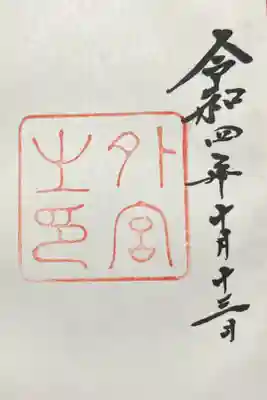 令和四年十月十三日
外宮
之印